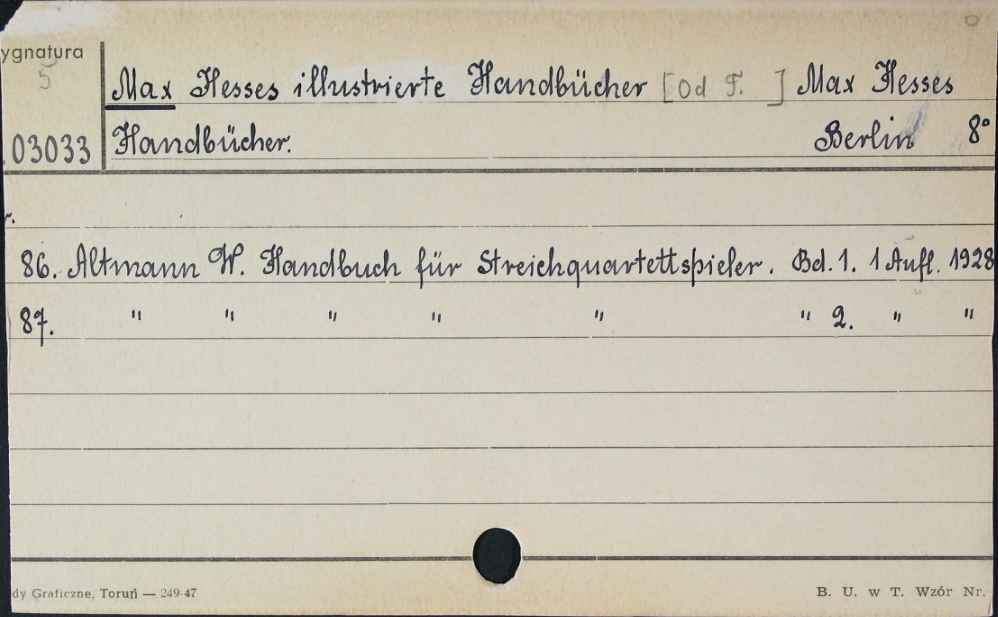 ygnatura
5
Max Hesses illustrierte Handbücher [od T. ] Max Hesses
03033 Handbücher. Berlin 8°
r.
86. Altmann W. Handbuch für Streichquartettspieler. Bd. 1. 1 Aufl. 1928
87. " " " " " " 2. " "
dy Graficzne, Toruń — 249-47 B. U. w T. Wzór Nr.